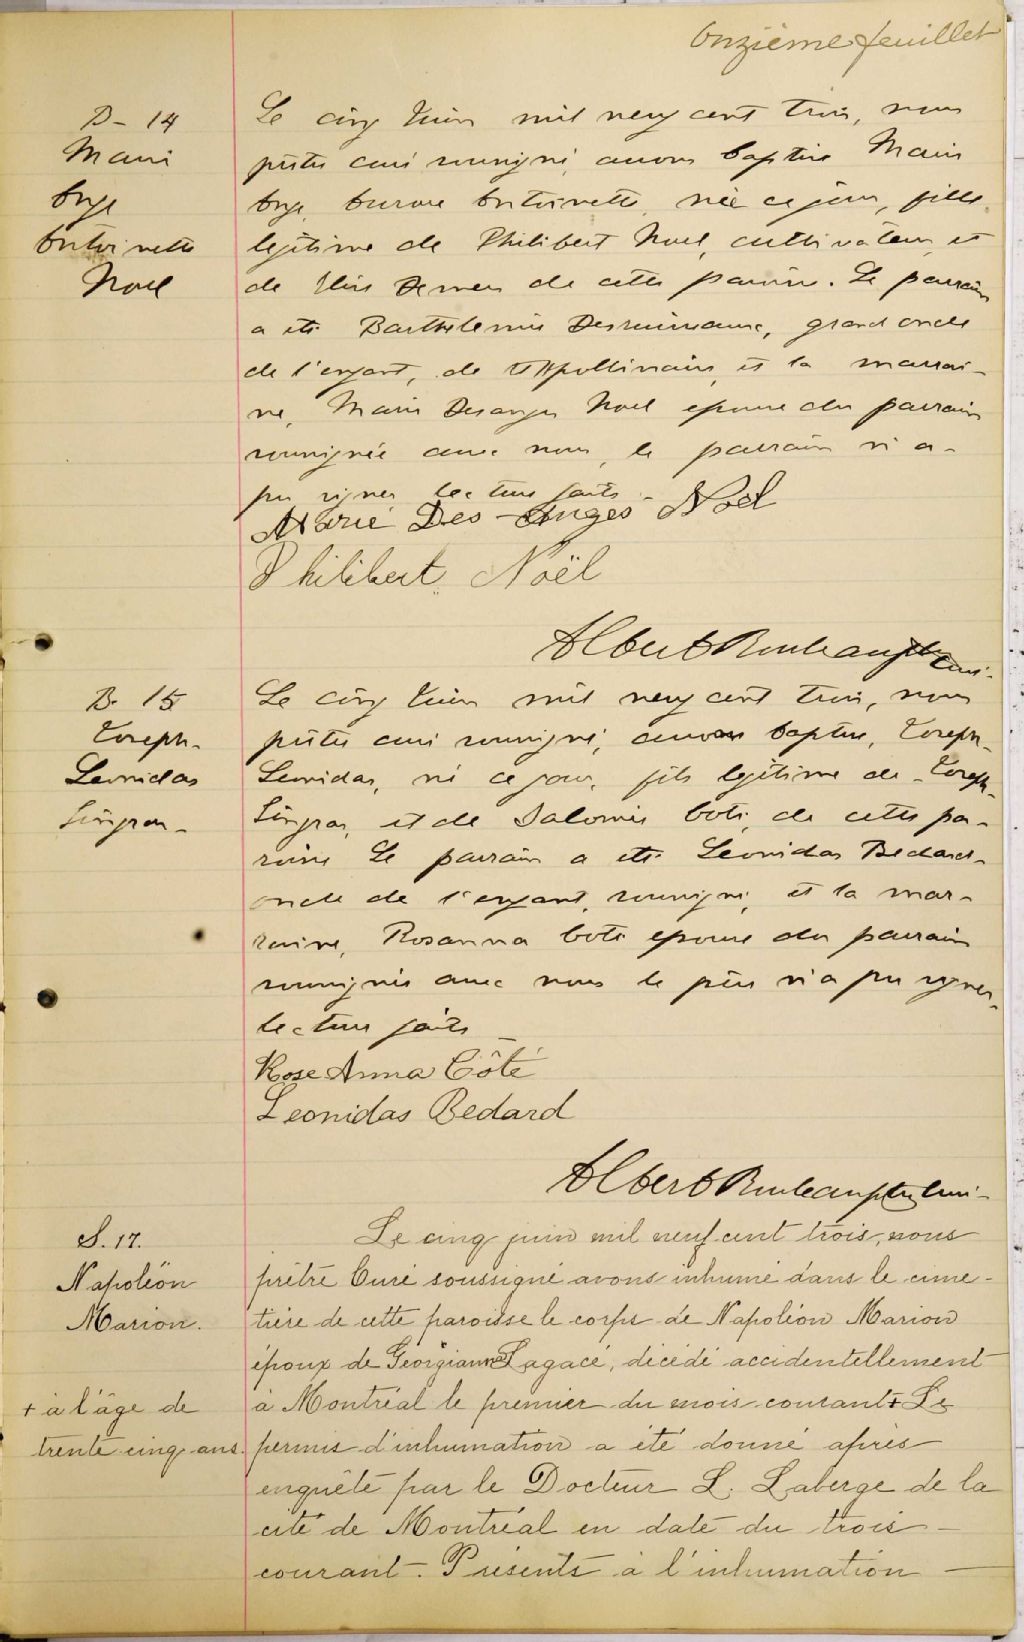 Onzième feuillet
B- 14
Marie
Ange
Antoinette
Noel
Le cinq Juin mil neuf cent trois, nous
prêtre curé soussigné, avons baptisé Marie
Ange, Aurore Antoinette, née ce jour, fille
légitime de Philibert Noel, cultivateur, et
de de cette paroisse. Le parrain
a été Barthelemie Desruisseaux, grand oncle
de l'enfant, de St Appollinaire, et la marrai-
ne, Marie Desanges Noel epouse du parrain
soussignée avec nous, le parrain n'a
pu signer lecture faite -
Marie Des-Anges Noël
Philibert Noël
Albert Rouleau ptre Curé-
B- 15
Joseph-
Leonidas
Gingras-
Le cinq Juin mil neuf cent trois, nous
prêtre curé soussigné, avons baptisé, Joseph-
Leonidas, né ce jour, fils légitime de Joseph-
Gingras, et de Salomée Coté, de cette pa-
roisse Le parrain a été Leonidas Bedard-
oncle de l'enfant, soussigné, et la mar-
raine, Rosanna Coté epouse du parrain
soussignés avec nous le père n'a pu signer-
lecture faite
Rose Anna Côté
Leonidas Bedard
Albert Rouleau ptre Curé-
S. 17.
Napoléon
Marion.
+ à l'âge de
trente cinq ans.
Le cinq juin mil neuf cent trois, nous
prêtre Curé soussigné avons inhumé dans le cime-
tière de cette paroisse le corps de Napoléon Marion
époux de Georgianna Lagacé, décédé accidentellement
à Montréal le premier du mois courant + Le
permis d'inhumation a été donné après
enquête par le Docteur L. Laberge de la
cité de Montréal en date du trois -
courant. Présents à l'inhumation -